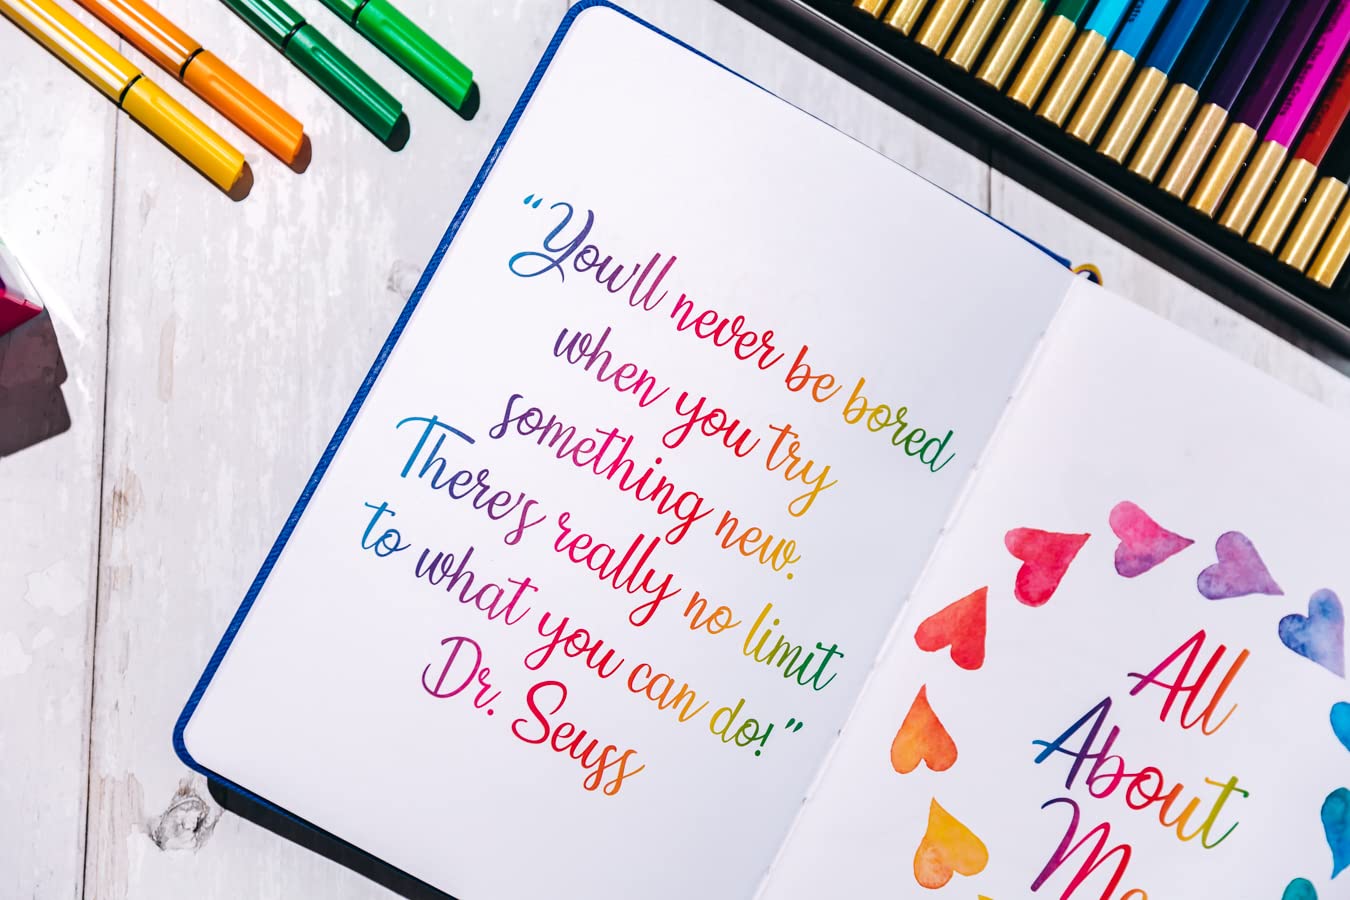 “You'll never be bored
when you try
something new.
There's really no limit
to what you can do!”
Dr. Seuss
All
About
Me